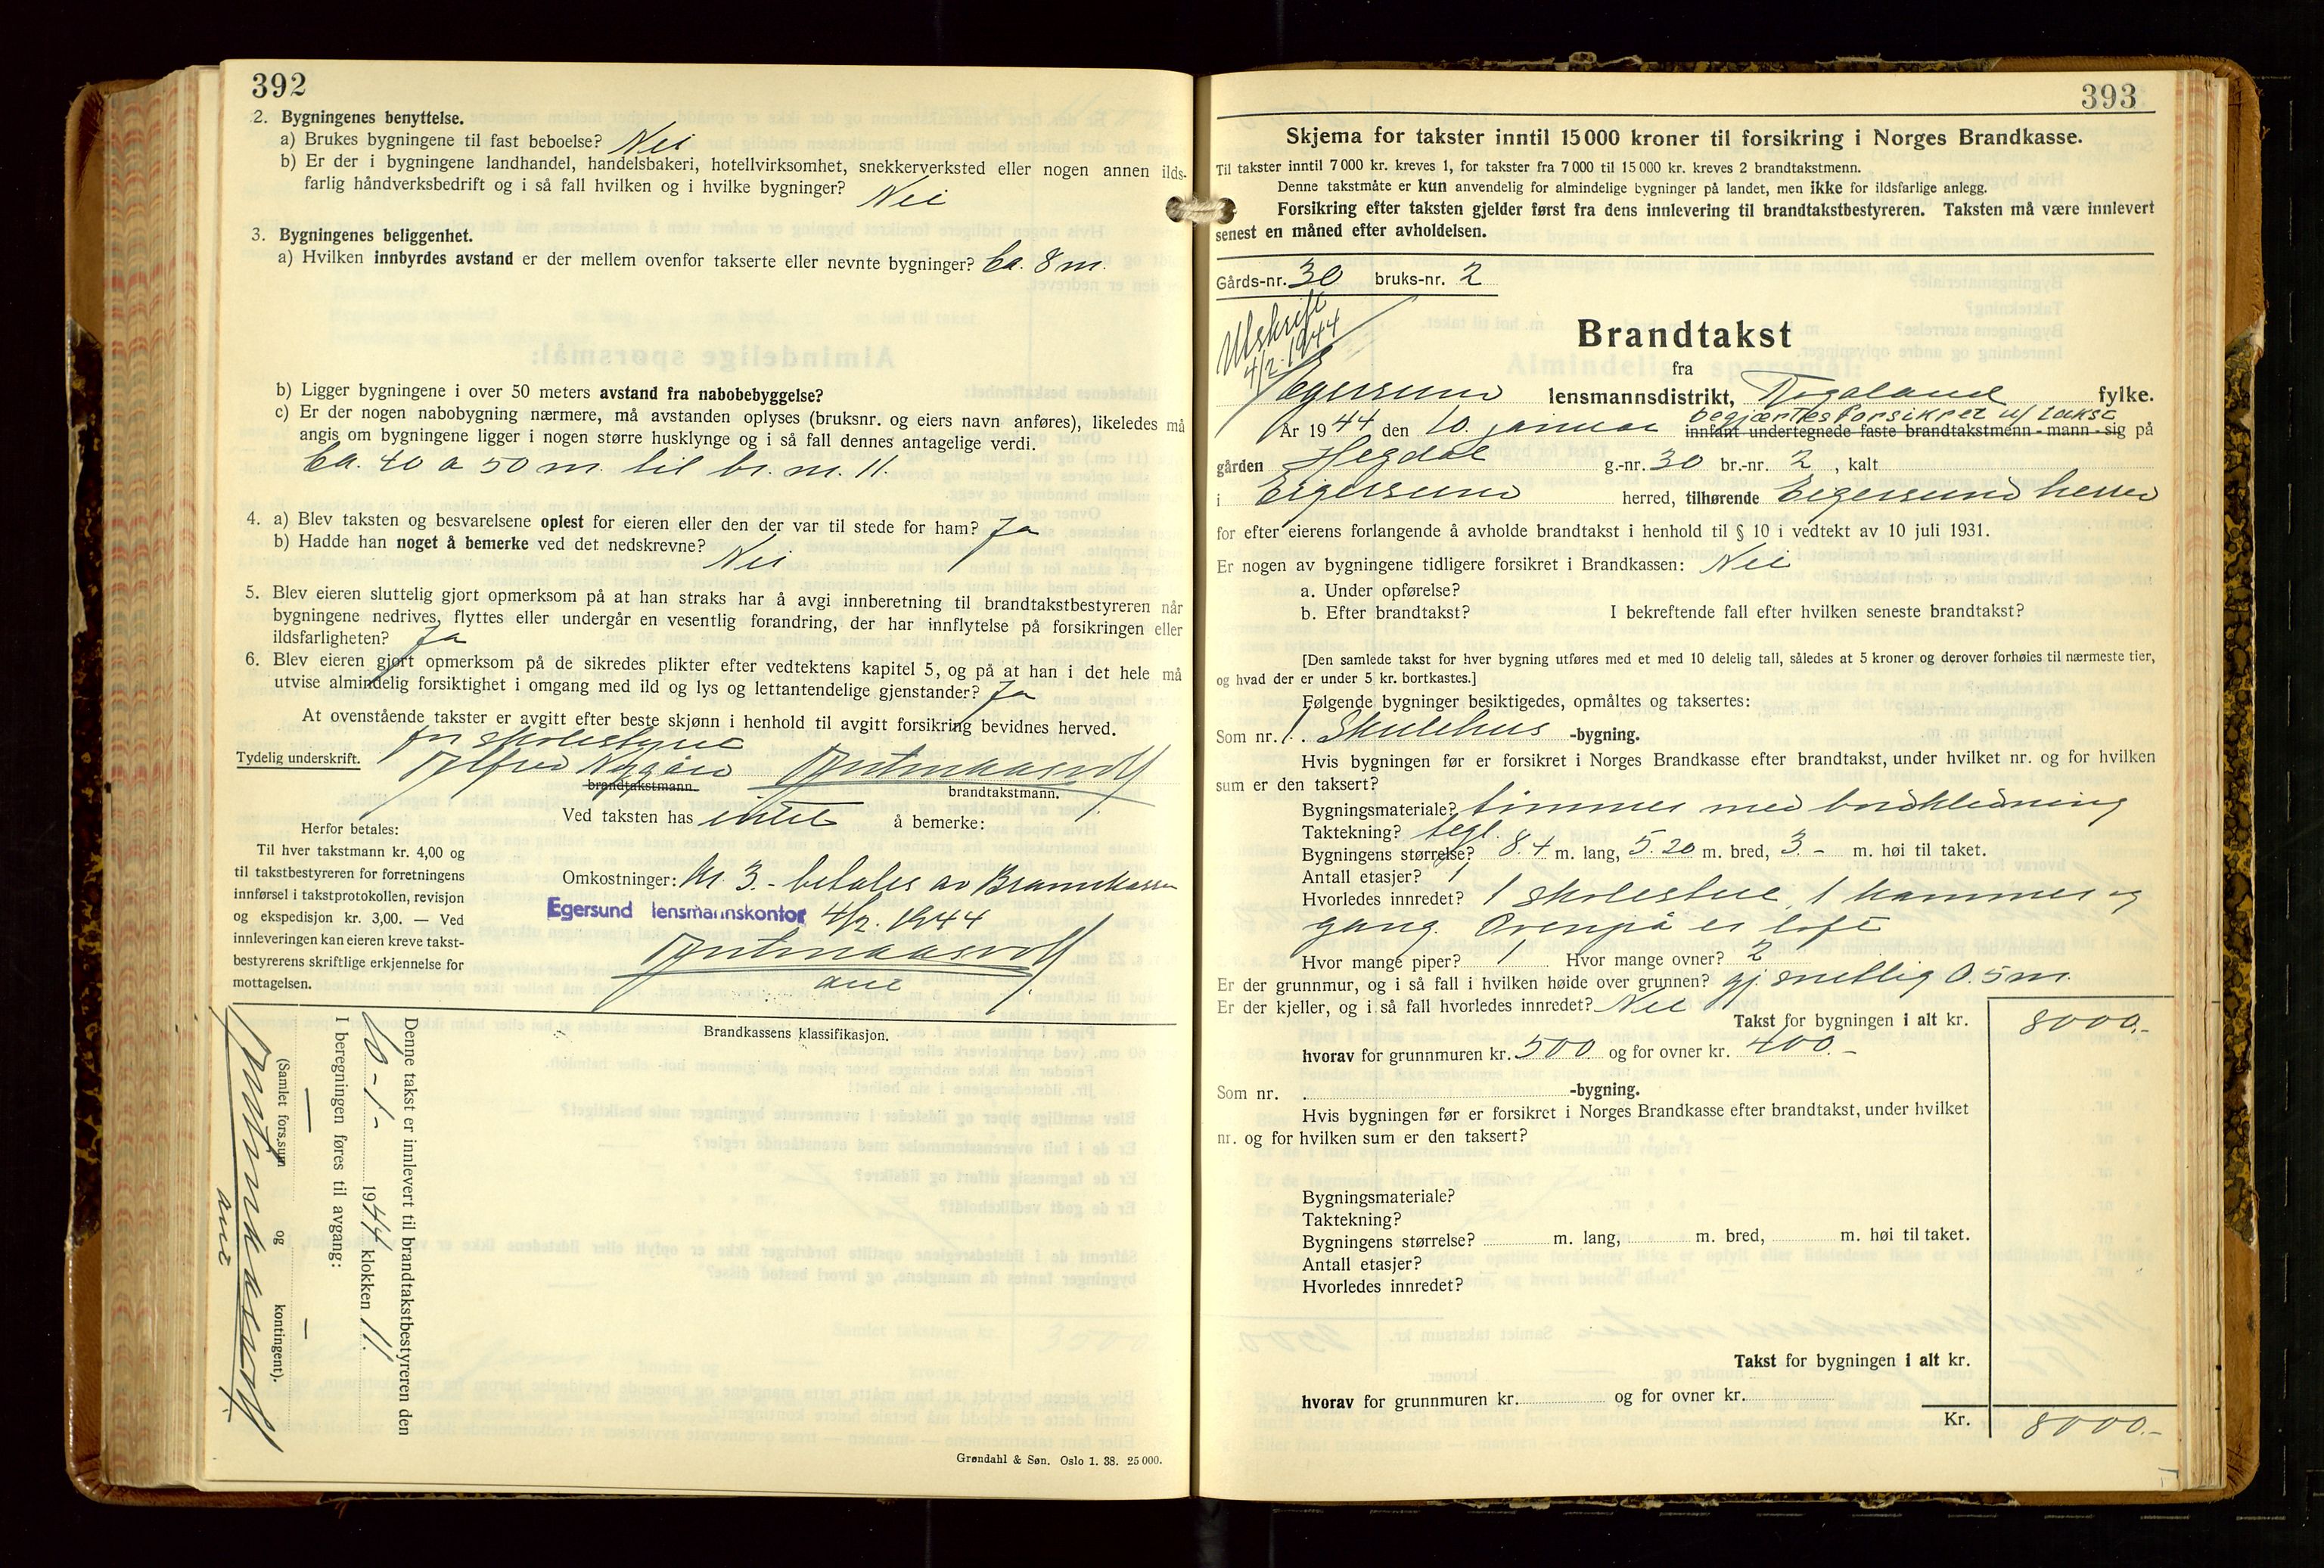 392
2. Bygningenes benyttelse.
a) Brukes bygningene til fast beboelse? Nei
b) Er der i bygningene landhandel, handelsbakeri, hotellvirksomhet, snekkerverksted eller nogen annen ilds-
farlig håndverksbedrift og i så fall hvilken og i hvilke bygninger? Nei
3. Bygningenes beliggenhet.
a) Hvilken innbyrdes avstand er der mellem ovenfor takserte eller nevnte bygninger? Ca. 8 m.
b) Ligger bygningene i over 50 meters avstand fra nabobebyggelse?
c) Er der nogen nabobygning nærmere, må avstanden oplyses (bruksnr. og eiers navn anføres), likeledes må
angis om bygningene ligger i nogen større husklynge og i så fall dennes antagelige verdi.
Ca. 40 a 50 m. til br. nr. 11.
4. a) Blev taksten og besvarelsene oplest for eieren eller den der var til stede for ham? Ja
b) Hadde han noget å bemerke ved det nedskrevne? Nei
5. Blev eieren sluttelig gjort opmerksom på at han straks har å avgi innberetning til brandtakstbestyreren når
bygningene nedrives, flyttes eller undergår en vesentlig forandring, der har innflytelse på forsikringen eller
ildsfarligheten? Ja
6. Blev eieren gjort opmerksom på de sikredes plikter efter vedtektens kapitel 5, og på at han i det hele må
utvise almindelig forsiktighet i omgang med ild og lys og lettantendelige gjenstander? Ja
At ovenstående takster er avgitt efter beste skjønn i henhold til avgitt forsikring bevidnes herved.
for skolestyret
Tydelig underskrift. Alfred Nygård
brandtakstmann. brandtakstmann.
Ved taksten has intet å bemerke:
Herfor betales:
Til hver takstmann kr. 4,00 og
til takstbestyreren for forretningens
innførsel i takstprotokollen, revisjon
og ekspedisjon kr. 3,00. — Ved
innleveringen kan eieren kreve takst-
bestyrerens skriftlige erkjennelse for
mottagelsen.
Omkostninger: Kr. 3.- betales av Brannkassen
Egersund lensmannskontor 4/2. 1944
Denne takst er innlevert til brandtakstbestyreren den
10 - 1 - 1944 klokken 11.
I beregningen føres til avgang:
— —
(Samlet fors.sum og kontingent).
Brandkassens klassifikasjon.
Grøndahl & Søn. Oslo 1. 38. 25 000.
393
Skjema for takster inntil 15 000 kroner til forsikring i Norges Brandkasse.
Til takster inntil 7 000 kr. kreves 1, for takster fra 7 000 til 15 000 kr. kreves 2 brandtakstmenn.
Denne takstmåte er kun anvendelig for almindelige bygninger på landet, men ikke for ildsfarlige anlegg.
Forsikring efter taksten gjelder først fra dens innlevering til brandtakstbestyreren. Taksten må være innlevert
senest en måned efter avholdelsen.
Gårds-nr. 30 bruks-nr. 2
Utskrift
4/2. 1944
Brandtakst
fra
Egersund lensmannsdistrikt, Rogaland fylke.
begjærtes forsikret u/ takst
År 1944 den 10. januar innfant undertegnede faste brandtakstmenn - mann - sig på
gården Hegdal g.-nr. 30 br.-nr. 2 , kalt
i Eigersund herred, tilhørende Eigersund herred
for efter eierens forlangende å avholde brandtakst i henhold til § 10 i vedtekt av 10 juli 1931.
Er nogen av bygningene tidligere forsikret i Brandkassen: Nei
a. Under opførelse?
b. Efter brandtakst? I bekreftende fall efter hvilken seneste brandtakst?
[Den samlede takst for hver bygning utføres med et med 10 delelig tall, således at 5 kroner og derover forhøies til nærmeste tier,
og hvad der er under 5 kr. bortkastes.]
Følgende bygninger besiktigedes, opmåltes og taksertes:
Som nr. 1. Skulehus -bygning.
Hvis bygningen før er forsikret i Norges Brandkasse efter brandtakst, under hvilket nr. og for hvilken
sum er den taksert?
Bygningsmateriale? timmer med bordkledning
Taktekning? tegl.
Bygningens størrelse? 8.4 m. lang, 5.20 m. bred, 3.- m. høi til taket.
Antall etasjer? 1
Hvorledes innredet? 1 skolestue, 1 kammer og
gang. Ovenpå er loft
Hvor mange piper? 1 Hvor mange ovner? 2
Er der grunnmur, og i så fall i hvilken høide over grunnen? gj. snittlig 0.5 m.
Er der kjeller, og i så fall hvorledes innredet? Nei
Takst for bygningen i alt kr. 8000.-
hvorav for grunnmuren kr. 500 og for ovner kr. 400.-
Som nr. . -bygning.
Hvis bygningen før er forsikret i Norges Brandkasse efter brandtakst, under hvilket
nr. og for hvilken sum er den taksert?
Bygningsmateriale?
Taktekning?
Bygningens størrelse? m. lang, m. bred, m. høi til taket.
Antall etasjer?
Hvorledes innredet?
Takst for bygningen i alt kr.
hvorav for grunnmuren kr. og for ovner kr.
Kr. 8000.-